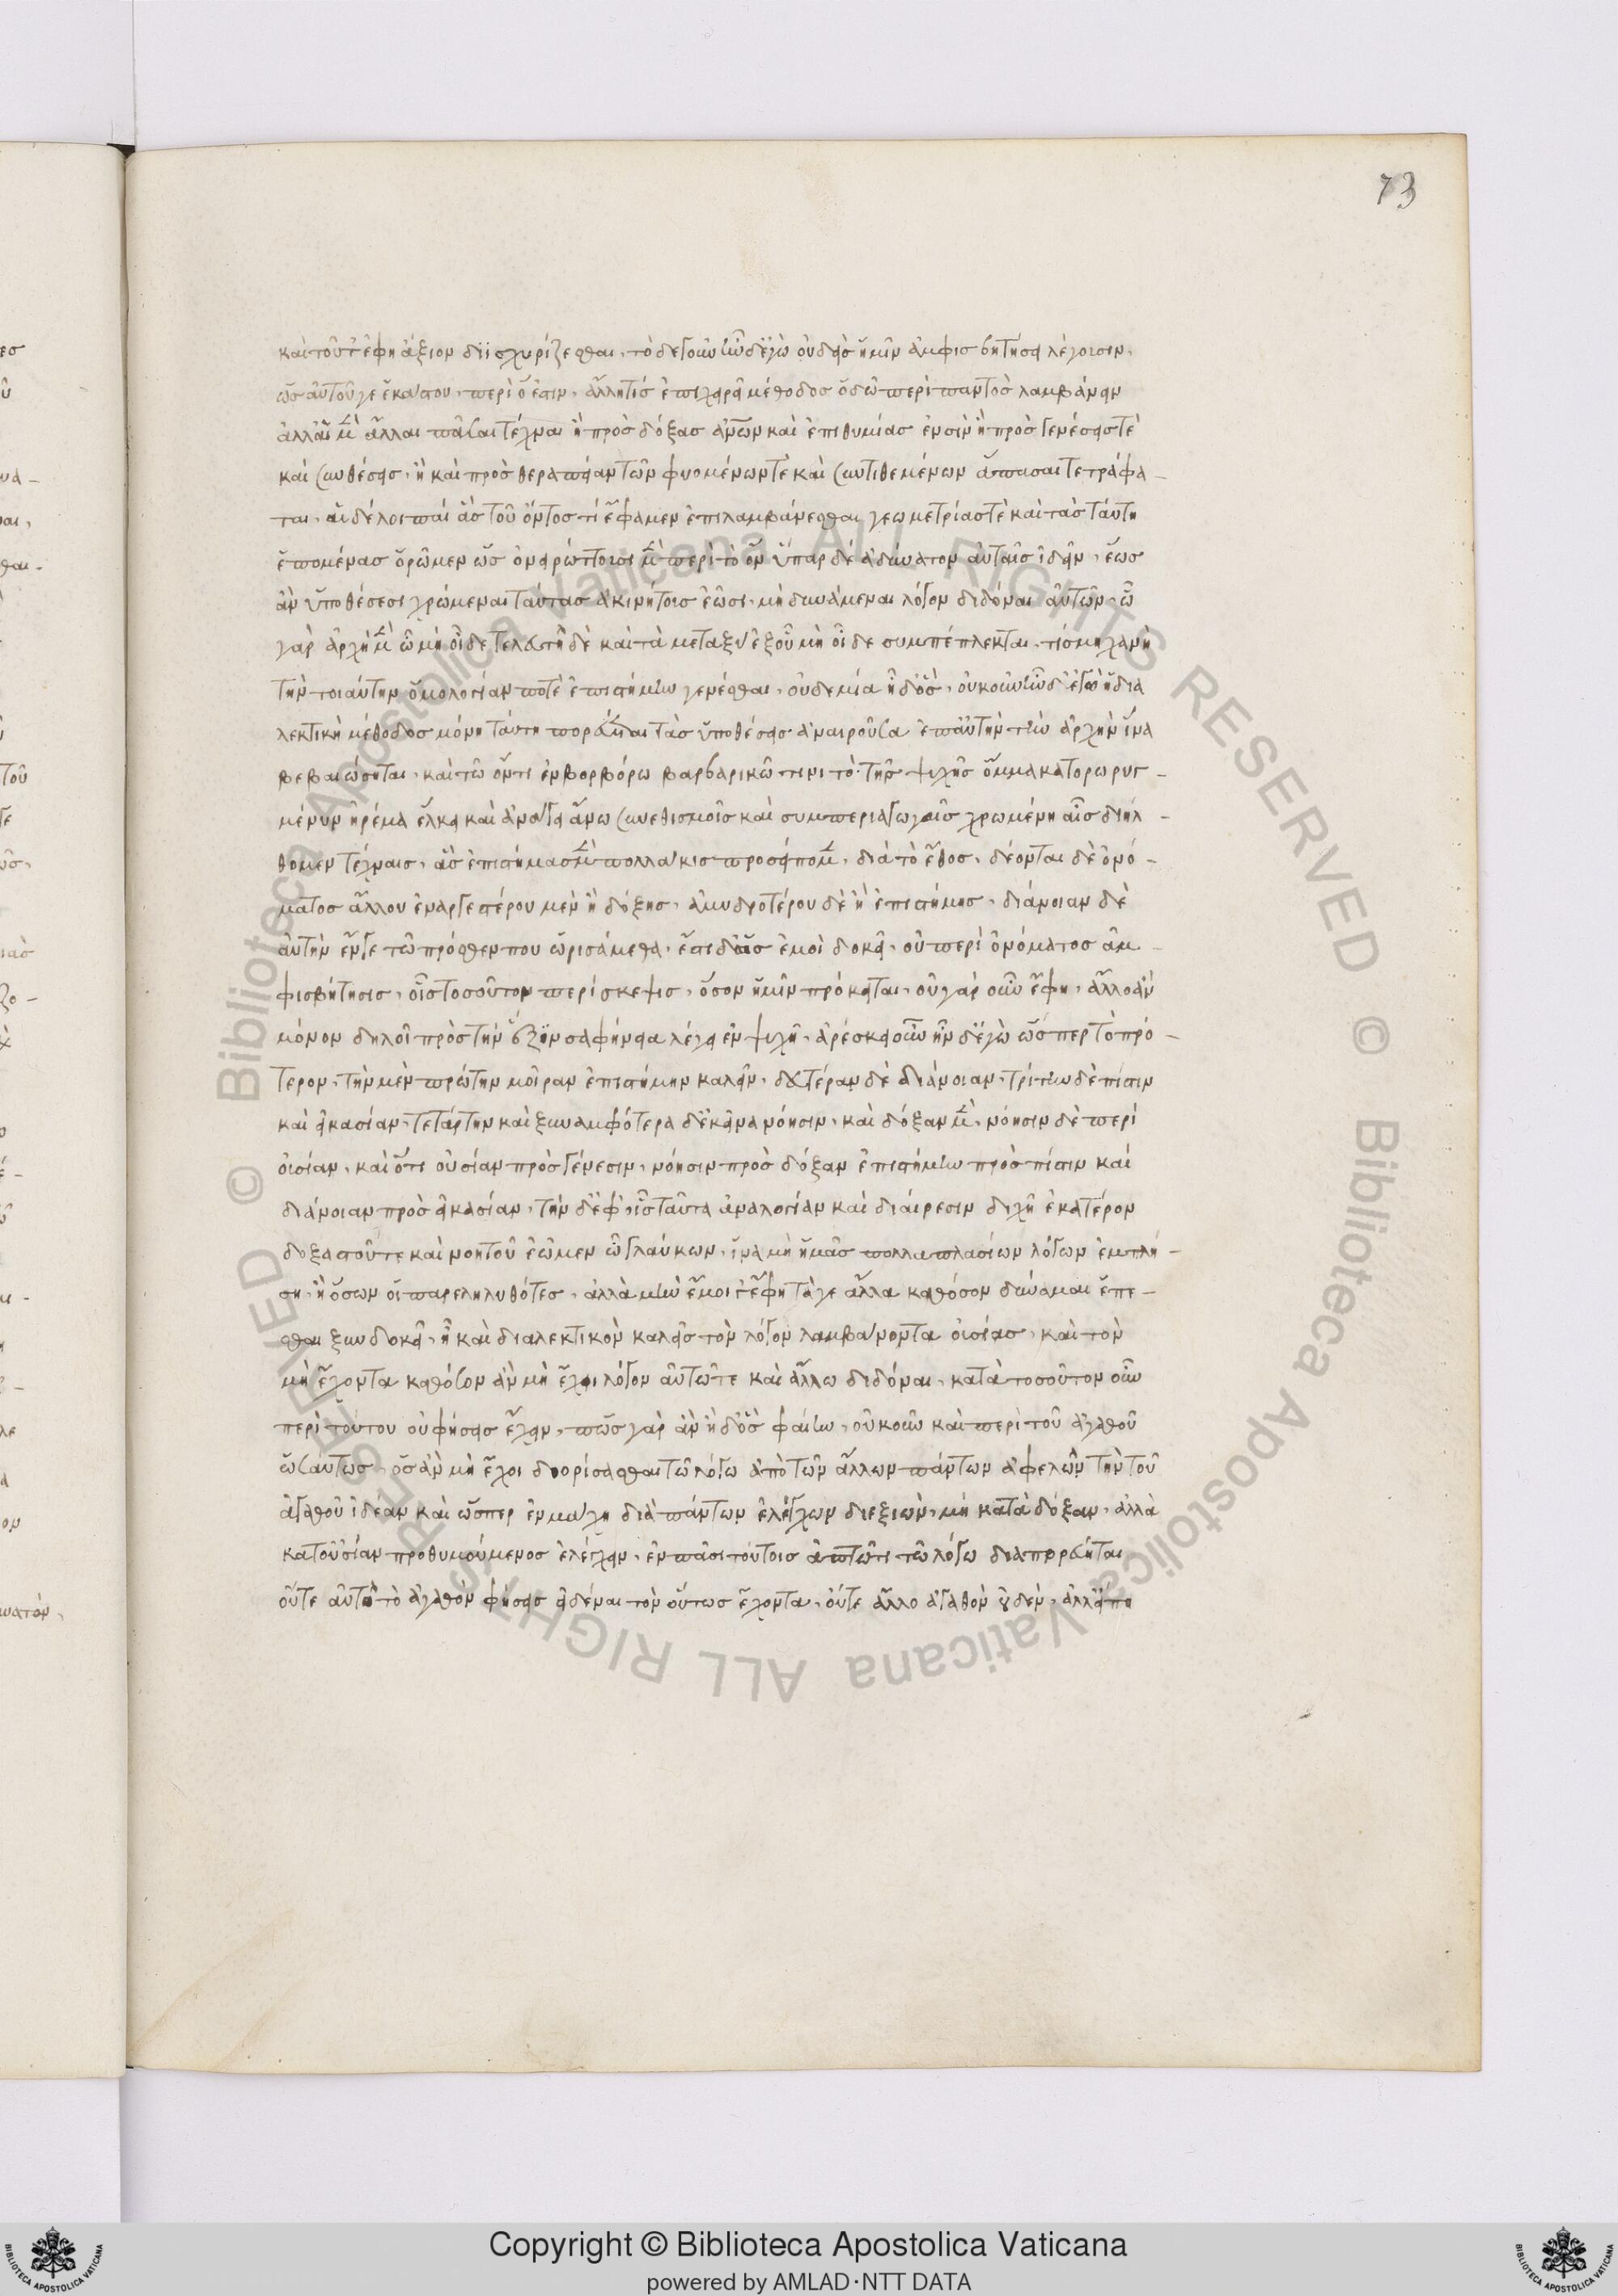 καὶ τοῦτ' ἔφη ἄξιον διϊσχυρίζεσθαι· τὸ δε γοῦν ἦν δ' ἐγὼ οὐδεὶς ἡμῖν ἀμφισβητήσει λέγουσιν,
ὡς αὐτοῦ γε ἑκάστου, περὶ ὅ ἐστιν, ἄλλη τίς ἐπιχειρεῖ μέθοδος ὁδῷ περὶ παντὸς λαμβάνειν
ἀλλ' αἱ μὲν ἄλλαι πᾶσαι τέχναι ἢ πρὸς δόξας ἀνων καὶ ἐπιθυμίας εἰσὶν ἢ πρὸς γενέσεις τὲ
καὶ συνθέσεις, ἢ καὶ πρὸς θεραπείαν τῶν φυομένων τὲ καὶ συντιθεμένων ἅπασαι τετράφα-
ται. αἱ δὲ λοιπαί ἃς τοῦ ὄντος τί ἔφαμεν ἐπιλαμβάνεσθαι γεωμετρίας τὲ καὶ τὰς ταύτῃ
ἑπομένας ὁρῶμεν ὡς ὀνειρώττουσι μὲν περὶ τὸ ὂν ὕπαρ δὲ ἀδύνατον αὐταῖς ἰδεῖν, ἕως
ἂν ὑποθέσεσι χρώμεναι ταύτας ἀκινήτους ἐῶσι, μὴ δυνάμεναι λόγον διδόναι αὐτῶν, ᾧ
γὰρ ἀρχὴ μὲν ὃ μὴ οἶδε τελευτὴ δὲ καὶ τὰ μεταξὺ ἐξ οὗ μὴ οἶδε συμπέπλεκται, τίς μηχανὴ
τὴν τοιαύτην ὁμολογίαν ποτὲ ἐπιστήμην γενέσθαι, οὐδεμία ἦ δ' ὅς, οὐκοῦν ἦν δ' ἐγὼ ἡ δια
λεκτικὴ μέθοδος μόνη ταύτῃ πορεύεται τὰς ὑποθέσεις ἀναιροῦσα ἐπ' αὐτὴν τὴν ἀρχὴν ἵνα
βεβαιώσηται, καὶ τῷ ὄντι ἐν βορβόρῳ βαρβαρικῷ τινι τὸ τῆς ψυχῆς ὄμμα κατορωρυγ-
μένον ἠρέμα ἕλκει καὶ ἀνάγει ἄνω συνεθισμοῖς καὶ συμπεριαγωγαῖς χρωμένη αἷς διήλ-
θομεν τέχναις, ἃς ἐπιστήμας μὲν πολλάκις προσείπομεν, διὰ τὸ ἔθος, δέονται δὲ ὀνό-
ματος ἄλλου ἐναργεστέρου μὲν ἢ δόξης, ἀμυδροτέρου δὲ ἢ ἐπιστήμης, διάνοιαν δὲ
αὐτὴν ἔν γε τῷ πρόσθεν που ὡρισάμεθα, ἔστι δ' ὡς ἐμοὶ δοκεῖ, οὐ περὶ ὀνόματος ἀμ-
φισβήτησις, οἷς τοσούτων πέρι σκέψις, ὅσων ἡμῖν πρόκειται, οὐ γὰρ οὖν ἔφη, ἀλλ' ὃ ἂν
μόνον δηλοῖ πρὸς τὴν ἕξιν σαφηνείᾳ λέγει ἐν ψυχῇ, ἀρέσκει οὖν ἦν δ' ἐγὼ ὥσπερ τὸ πρό-
τερον, τὴν μὲν πρώτην μοῖραν ἐπιστήμην καλεῖν, δευτέραν δὲ διάνοιαν, τρίτην δὲ πίστιν
καὶ εἰκασίαν, τετάρτην καὶ ξυναμφότερα δ' ἐκεῖνα νόησιν, καὶ δόξαν μὲν, νόησιν δὲ περὶ
οὐσίαν, καὶ ὅτι οὐσίαν πρὸς γένεσιν, νόησιν πρὸς δόξαν ἐπιστήμην πρὸς πίστιν καὶ
διάνοιαν πρὸς εἰκασίαν, τὴν δ' ἐφ' οἷς ταῦτα ἀναλογίαν καὶ διαίρεσιν διχῇ ἑκατέρου
δοξαστοῦ τε καὶ νοητοῦ ἐῶμεν ὦ γλαύκων, ἵνα μὴ ἡμᾶς πολλαπλασίων λόγων ἐμπλή-
σῃ, ἢ ὅσων οἱ παρεληλυθότες, ἀλλὰ μὴν ἔμοιγ' ἔφη τά γε ἄλλα καθόσον δύναμαι ἕπε-
σθαι ξυνδοκεῖ, ἦ καὶ διαλεκτικὸν καλεῖς τὸν λόγον λαμβάνοντα οὐσίας, καὶ τὸν
μὴ ἔχοντα καθόσον ἂν μὴ ἔχῃ λόγον αὑτῷ τε καὶ ἄλλῳ διδόναι, κατὰ τοσοῦτον οὖν
περὶ τούτου οὐ φήσεις ἔχειν, πῶς γὰρ ἂν ἦ δ' ὃς φαίην, οὐκοῦν καὶ περὶ τοῦ ἀγαθοῦ
ὡσαύτως, ὃς ἂν μὴ ἔχοι διορίσασθαι τῷ λόγῳ ἀπὸ τῶν ἄλλων πάντων ἀφελὼν τὴν τοῦ
ἀγαθοῦ ἰδέαν καὶ ὥσπερ ἐν μάχῃ διὰ πάντων ἐλέγχων διεξιὼν, μὴ κατὰ δόξαν, ἀλλὰ
κατ' οὐσίαν προθυμούμενος ἐλέγχειν, ἐν πᾶσι τούτοις ἀπτῶτι τῷ λόγῳ διαπορεύηται
οὔτε αὐτὸ τὸ ἀγαθὸν φήσεις εἰδέναι τὸν οὕτως ἔχοντα, οὔτε ἄλλο ἀγαθὸν οὐδὲν, ἀλλ' εἴ πη
73